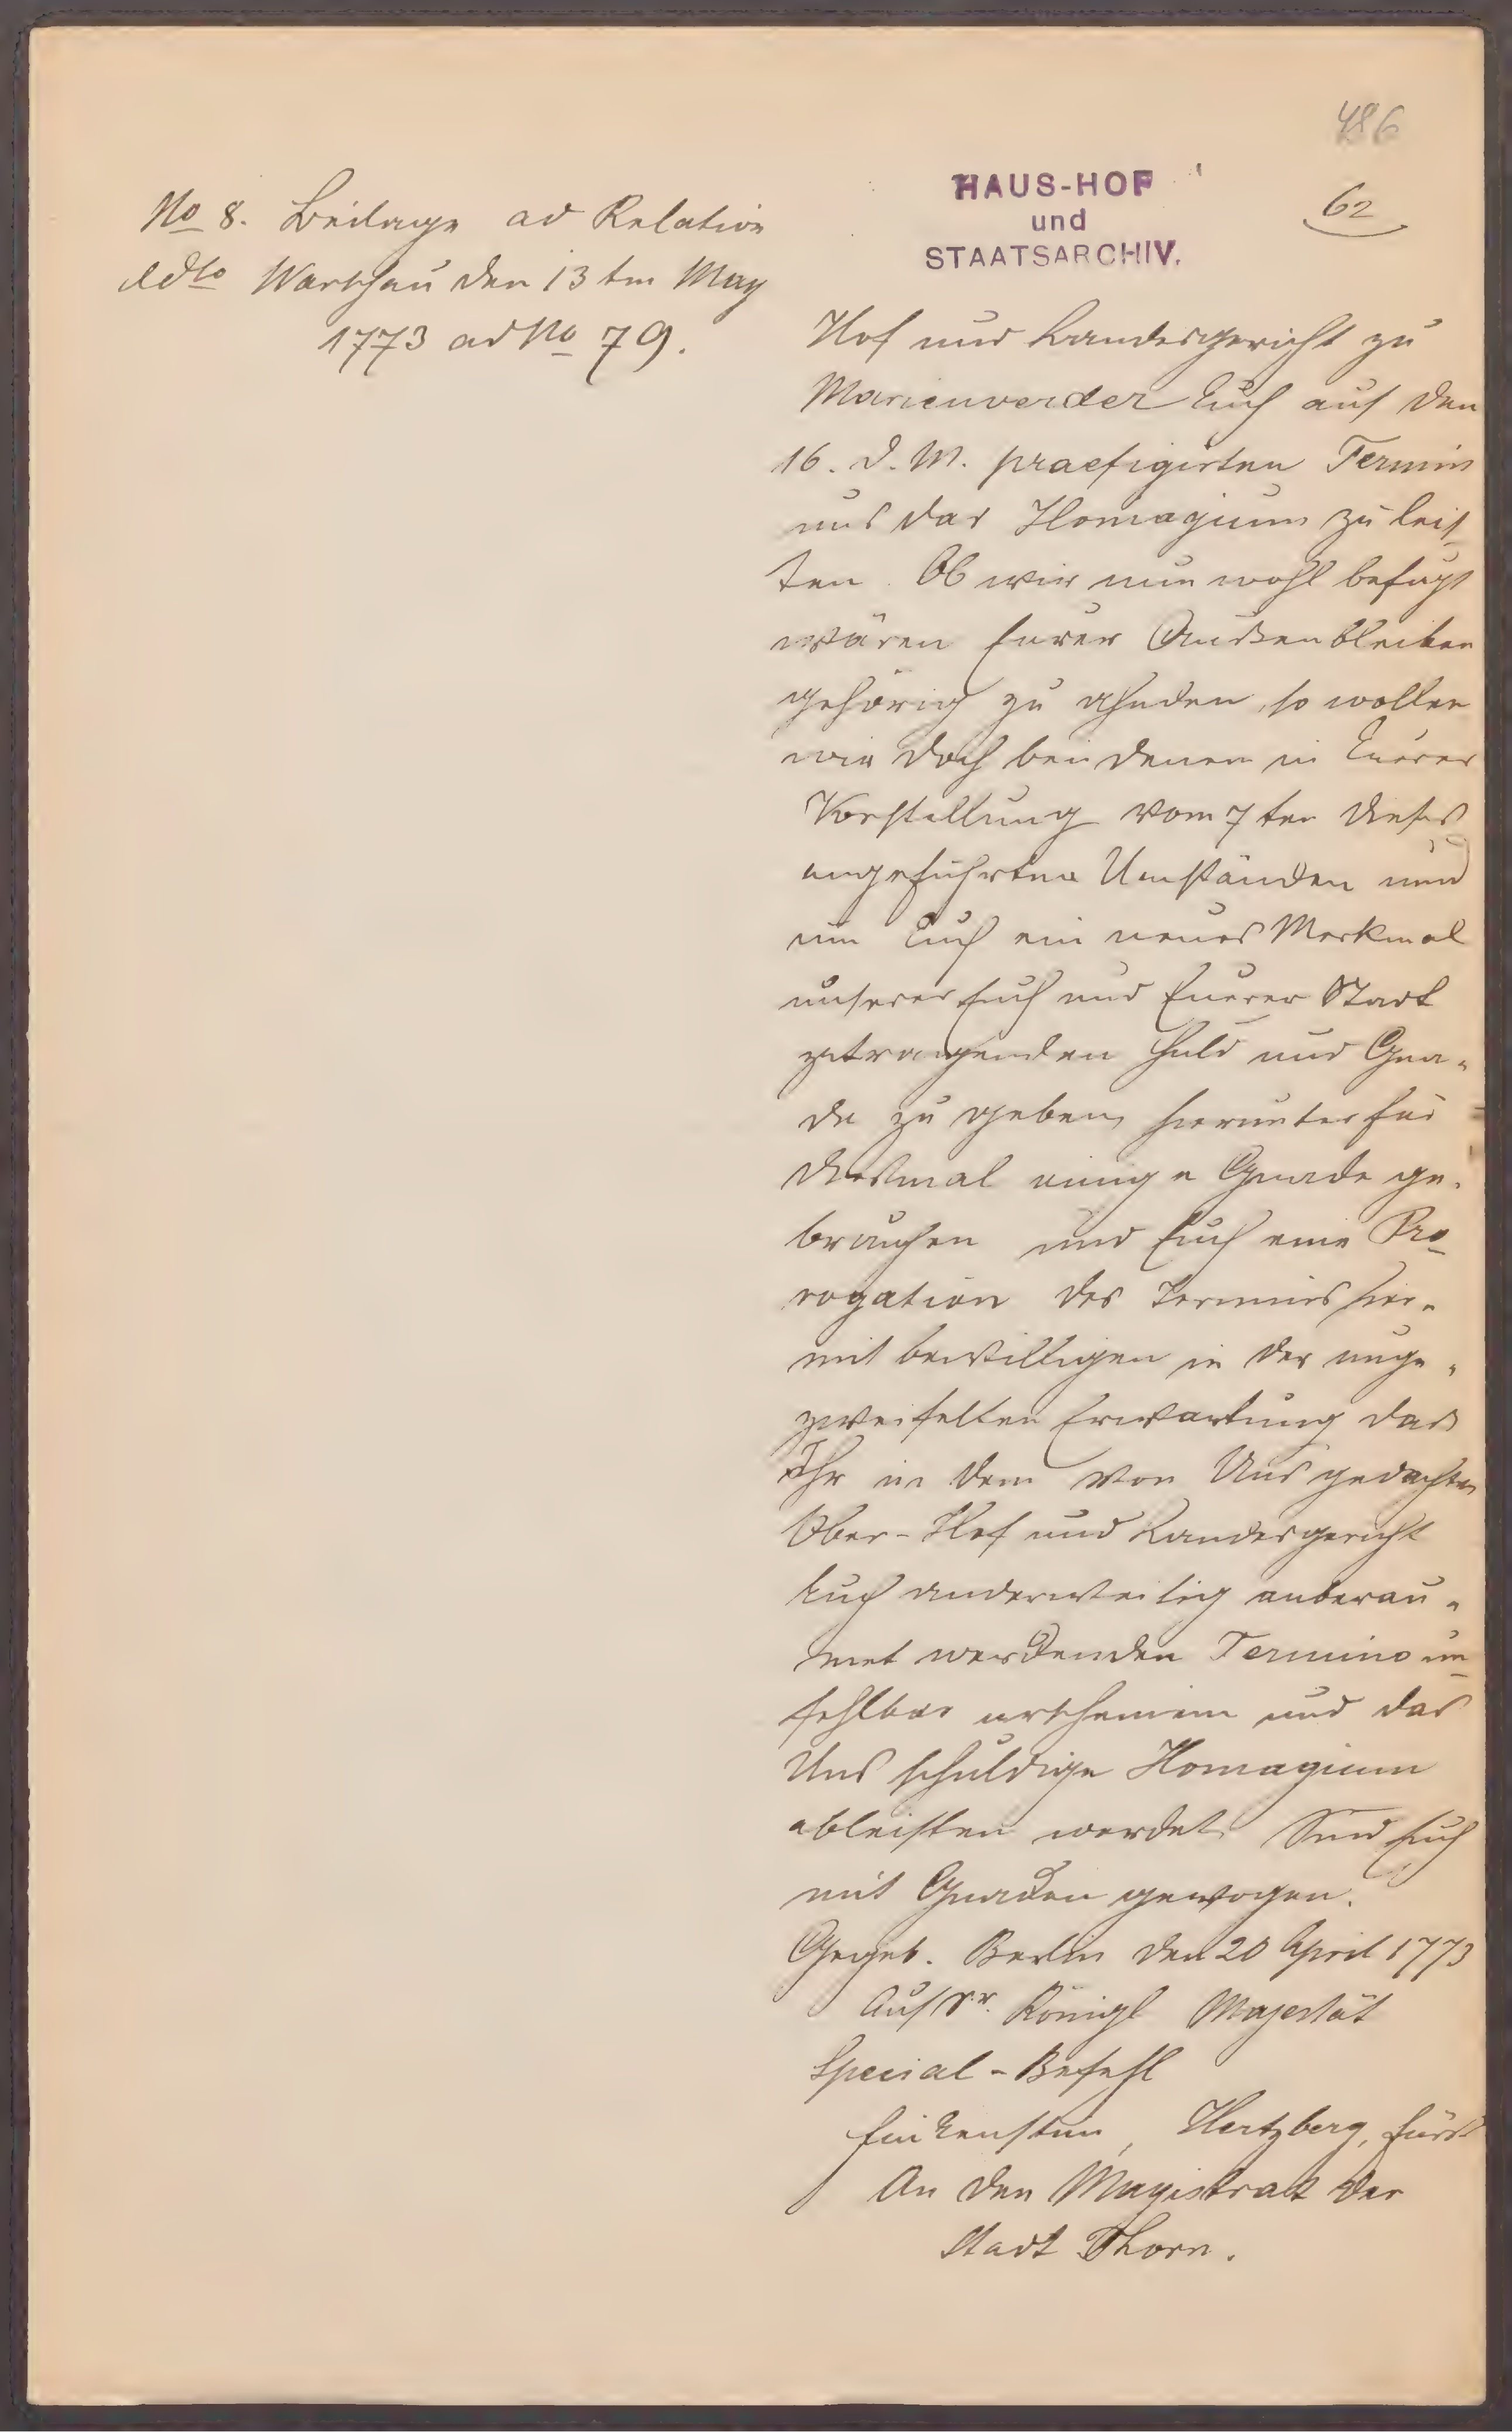 486
HAUS-HOF
und
STAATSARCHIV.
62
No 8. Beilage ad Relation
ddto Warschau den 13 ten May
1773 ad No 79.
Hof und Landesgericht zu
Marienverder Euch auf den
16. d. M. praefigirten Termin
uns das Homagium zu leis-
ten. Ob wir nun wohl befugt
wären Eurer Aussenbleiben
gehörig zu ahnden, so wollen
wir doch bei denen in Eurer
Vorstellung vom 7 ten dieses
angeführten Umständen und
um Euch ein neues Merkmal
unserer Euch und Euerer Stadt
zutragenden Huld und Gna-
de zu geben, hierunter für
diesmal einige Gnade ge-
brauchen und Euch eine Pro-
rogation des Termins hier-
mit bewilligen in der unge-
zweifelten Erwartung dass
Ihr in dem von Uns gedachten
Ober-Hof und Landesgericht
Euch anderweitig anberau-
met werdenden Termino un-
fehlbar erscheinen und das
Uns schuldige Homagium
ableisten werdet. Sind Euch
mit Gnaden gewogen.
Gegeb. Berlin den 20 April 1773
Auf Sr. Königl Majestät
Special-Befehl
Finkenstein, Hertzberg, Fürst
An den Magistrat der
Stadt Thorn.